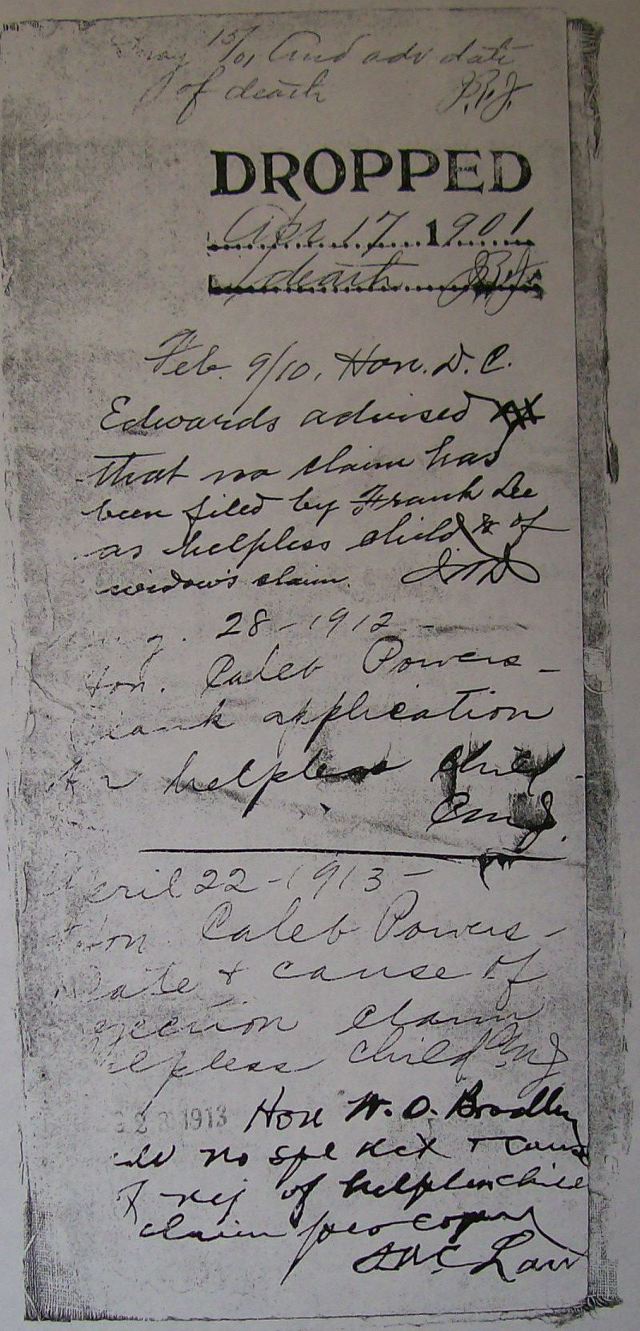 May 15/01, Aud adv date
of death J.R.J.
DROPPED
Apr. 17, 1901
death J.R.J.
Feb. 9/10, Hon. D. C.
Edwards advised
that no claim has
been filed by Frank Lee
as helpless child & of
widow's claim.
28-1912-
Hon. Caleb Powers-
application
helpless child-
April 22-1913-
Hon Caleb Powers-
Date & cause of
claim
helpless child
1913 Hon W. O. Bradley
no spl
rej of helpless child
claim
Law